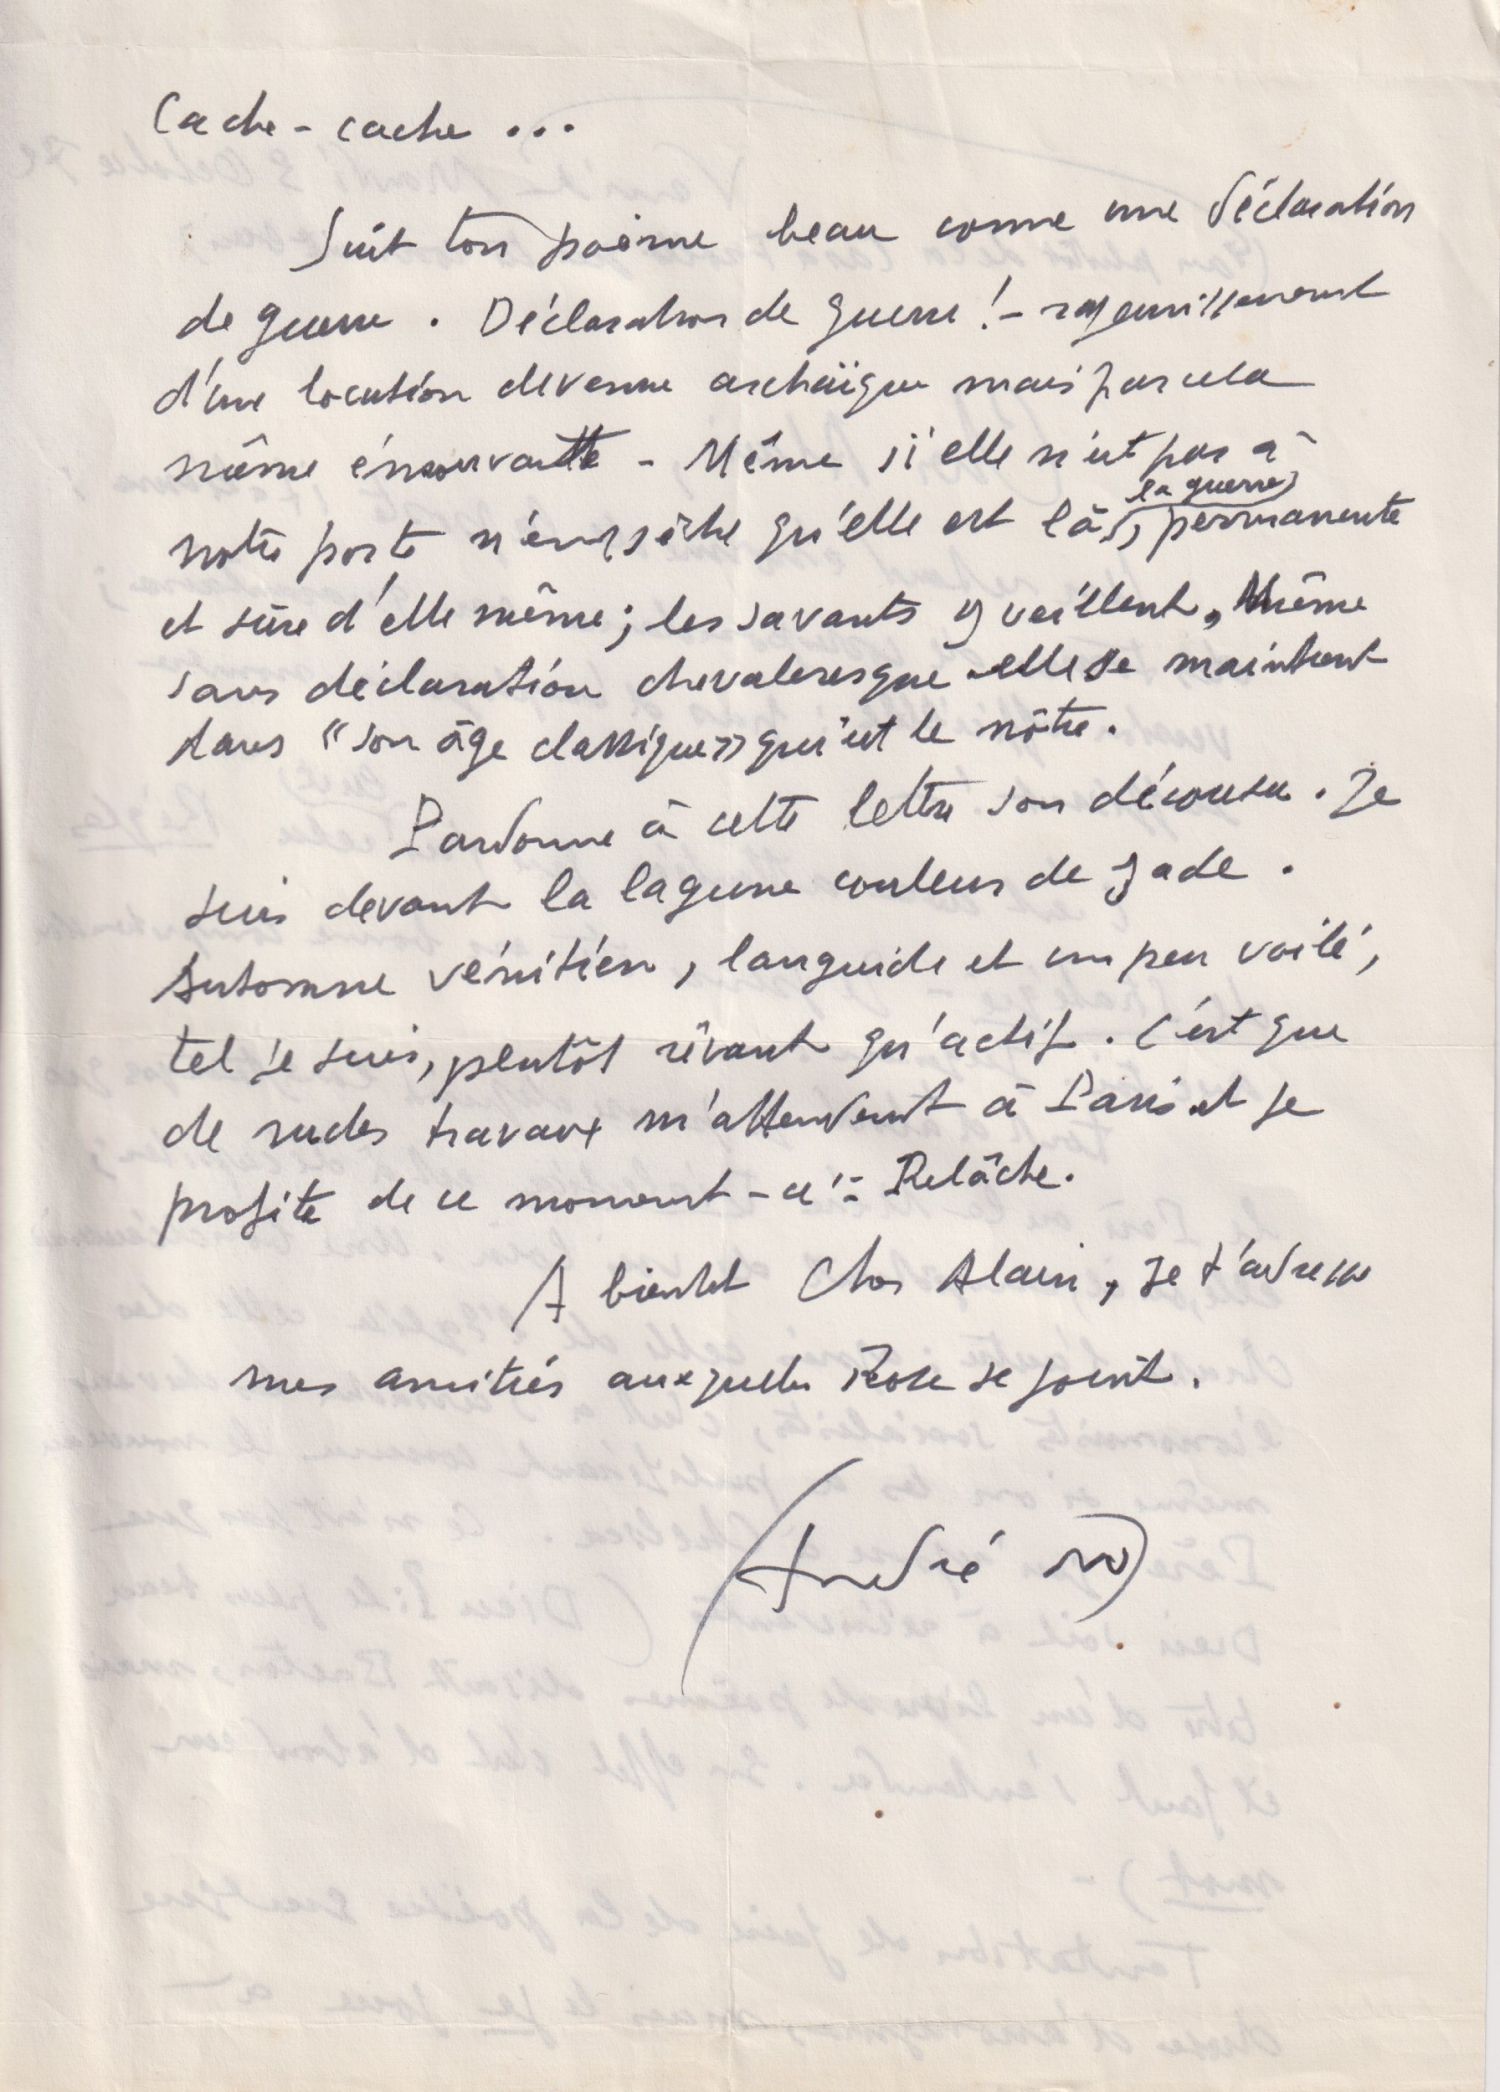 Cache-cache ...
Suit ton poème beau comme une déclaration
de guerre. Déclaration de guerre ! - rajeunissement
d'une locution devenue archaïque mais par cela
même émouvante - Même si elle n'est pas à
notre porte n'empêche qu'elle est là (la guerre), permanente
et sûre d'elle même ; les savants y veillent, Même
sans déclaration chevaleresque elle se maintient
dans "son âge classique" qui est le nôtre.
Pardonne à cette lettre son décousu. Je
suis devant la lagune couleur de jade.
Automne vénitien, languide et un peu voilé,
tel je suis, plutôt rêvant qu'actif. C'est que
de rudes travaux m'attendent à Paris et je
profite de ce moment-ci : Relâche.
A bientôt Cher Alain, je t'adresse
mes amitiés auxquelles Rose se joint.
André